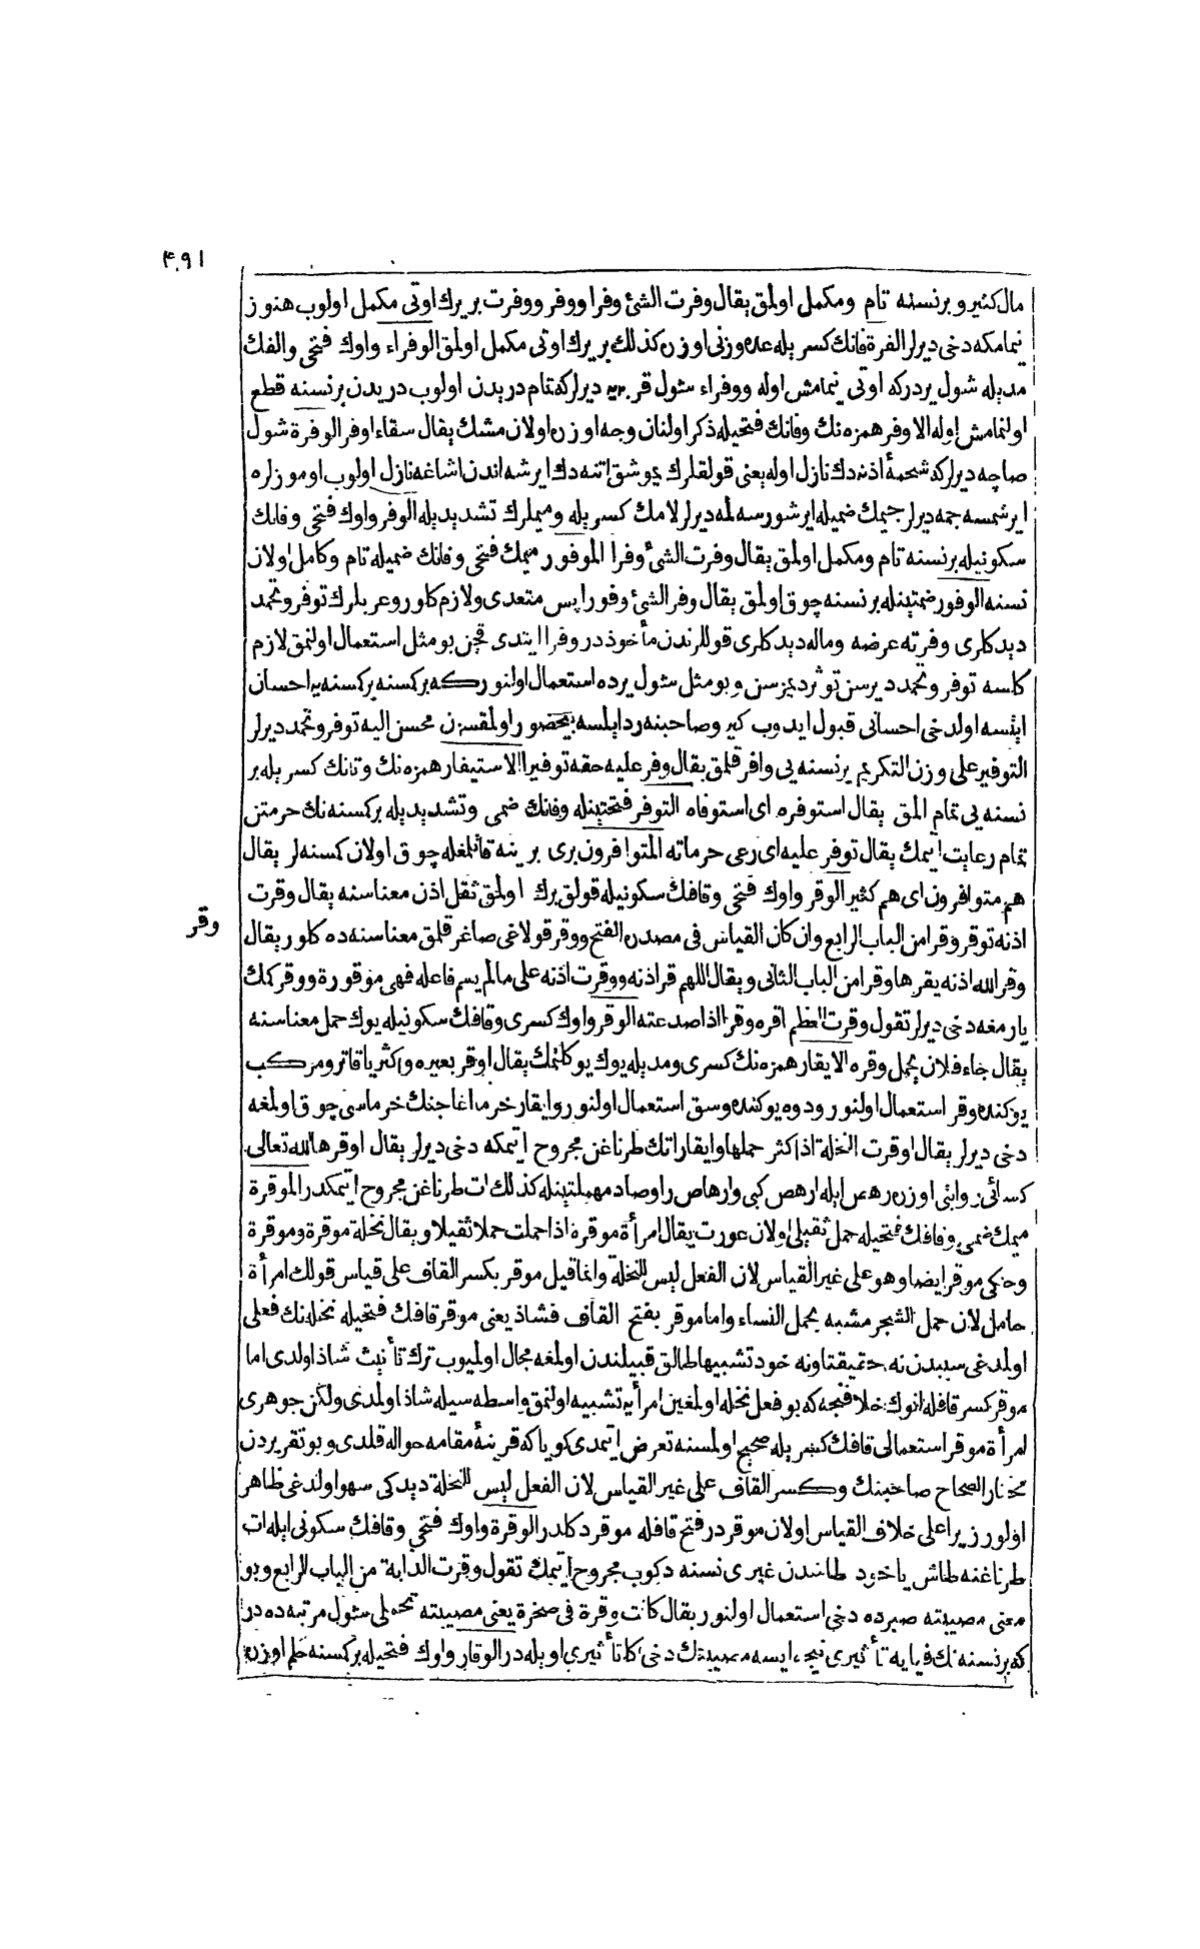 ٤٩١
مال كثير و برنسنه تام ومكمل اولمق يقال وفرت الشئ وفرا ووفر ووفرت بر يرك اوتى مكمل اولوب هنوز
ينمامكه دخى ديرلر الفرة فانك كسر يله عده وزنى اوزره كذلك بر يرك اوتى مكمل اولمق الوفراء واوك فتحى والفك
مديله شول يردركه اوتى ينمامش اوله ووفراء شول قر ديرلركه تام دريدن اولوب دريدن برنسنه قطع
اولنمامش اوله الاوفر همزه نك وفانك فتحيله ذكر اولنان وجه اوزره اولان مشك يقال سقاء اوفر الوفرة شول
صاچه ديرلركه شحمۀ اذنه دك نازل اوله يعنى قولقلرك يومشق اتنه دك ايرشه اندن اشاغه نازل اولوب اوموزلره
ايرشمسه جمه ديرلر جيمك ضميله ايرشورسه لمه ديرلر لامك كسر يله وميملرك تشديديله الوفر واوك فتحى وفانك
سكونيله برنسنه تام ومكمل اولمق يقال وفرت الشئ وفرا الموفور ميمك فتحى وفانك ضميله تام وكامل اولان
نسنه الوفور ضمتينله برنسنه چوق اولمق يقال وفر الشئ وفورا پس متعدى ولازم كلور وعربلرك توفر وتحمد
ديدكلرى وفرته عرضه وماله ديدكلرى قوللرندن مأخوذدر وفرا ايتدى قچن بو مثل استعمال اولنمق لازم
كلسه توفر وتحمد ديرسن توثر ديمزسن و بو مثل شول يرده استعمال اولنوركه بركسنه بركسنه يه احسان
ايتسه اولدخى احسانى قبول ايدوب كيرو صاحبنه رد ايلسه بيحضور اولمقسزن محسن اليه توفر وتحمد ديرلر
التوفير على وزن التكريم برنسنه يى وافر قلمق يقال وفر عليه حقه توفيرا الاستيفار همزه نك وتانك كسر يله بر
نسنه يى تمام المق يقال استوفره اى استوفاه التوفر فتحتينله وفانك ضمى وتشديديله بركسنه نك حرمتن
تمام رعايت ايمك يقال توفر عليه اى رعى حرماته المتوافرون برى برينه قاتلمغله چوق اولان كسنه لر يقال
هم متوافرون اى هم كثير الوقر واوك فتحى وقافك سكونيله قولق برك اولمق ثقل اذن معناسنه يقال وقرت
وقر
اذنه توقر وقرا من الباب الرابع وان كان القياس فى مصدره الفتح ووقر قولاغى صاغر قلمق معناسنه ده كلور يقال
وقر الله اذنه يقرها وقرا من الباب الثانى و يقال اللهم قر اذنه ووقرت اذنه على مالم يسم فاعله فهى موقورة ووقر كمك
يارمغه دخى ديرلر تقول وقرت العظم اقره وقرا اذا صدعته الوقر واوك كسرى وقافك سكونيله يوك حمل معناسنه
يقال جاء فلان يحمل وقره الايقار همزه نك كسرى ومديله يوك يوكلتمك يقال اوقر بعيره واكثر يا قاتر ومركب
يوكنده وقر استعمال اولنور ودوه يوكنده وسق استعمال اولنور وايقار خرما اغاجنك خرماسى چوق اولمغه
دخى ديرلر يقال اوقرت النخلة اذا كثر حملها وايقار اتك طرناغن مجروح ايتمكه دخى ديرلر يقال اوقرها الله تعالى
كسائى روايتى اوزره رهص ايله ارهص كبى وارهاص را وصاد مهملتينله كذلك ات طرناغن مجروح ايتمكدر الموقرة
ميمك ضمى وقافك فتحيله حمل ثقيلى اولان عورت يقال امرأة موقرة اذا حملت حملا ثقيلا و يقال نخلة موقرة وموقرة
وحكى موقر ايضا وهو على غير القياس لان الفعل ليس للنخلة وانما قيل موقر بكسر القاف على قياس قولك امرأة
حامل لان حمل الشجر مشبه بحمل النساء واما موقر بفتح القاف فشاذ يعنى موقر قافك فتحيله نخله نك فعلى
اولمدغى سببدن نه حقيقتا ونه خود تشبيها طالق قبيلندن اولمغه مجال اولميوب ترك تأنيث شاذ اولدى اما
موقر كسر قافله انوك خلافنجه كه بو فعل نخله اولمغين امرأ يه تشبيه اولنمق واسطه سيله شاذ اولمدى ولكن جوهرى
امرأة موقر استعمالى قافك كسر يله صحيح اولمسنه تعرض ايتمدى كويا كه قرينۀ مقامه حواله قلدى و بو تقريردن
مختار الصحاح صاحبنك وكسر القاف على غير القياس لان الفعل ليس للنخلة ديدكى سهو اولدغى ظاهر
اولور زيرا على خلاف القياس اولان موقردر فتح قافله موقر دكلدر الوقرة واوك فتحى وقافك سكونى ايله ات
طرناغنه طاش ياخود طاشدن غيرى نسنه دكوب مجروح ايتمك تقول وقرت الدابة من الباب الرابع و بو
معنى مصيبته صبرده دخى استعمال اولنور يقال كانت وقرة فى صخرة يعنى مصيبته تحملى شول مرتبه ده در
كه برنسنه نك قيايه تأثيرى نيجه ايسه مصيبتك دخى كا تأثيرى او يله در الوقار واوك فتحيله بركسنه حلم اوزره